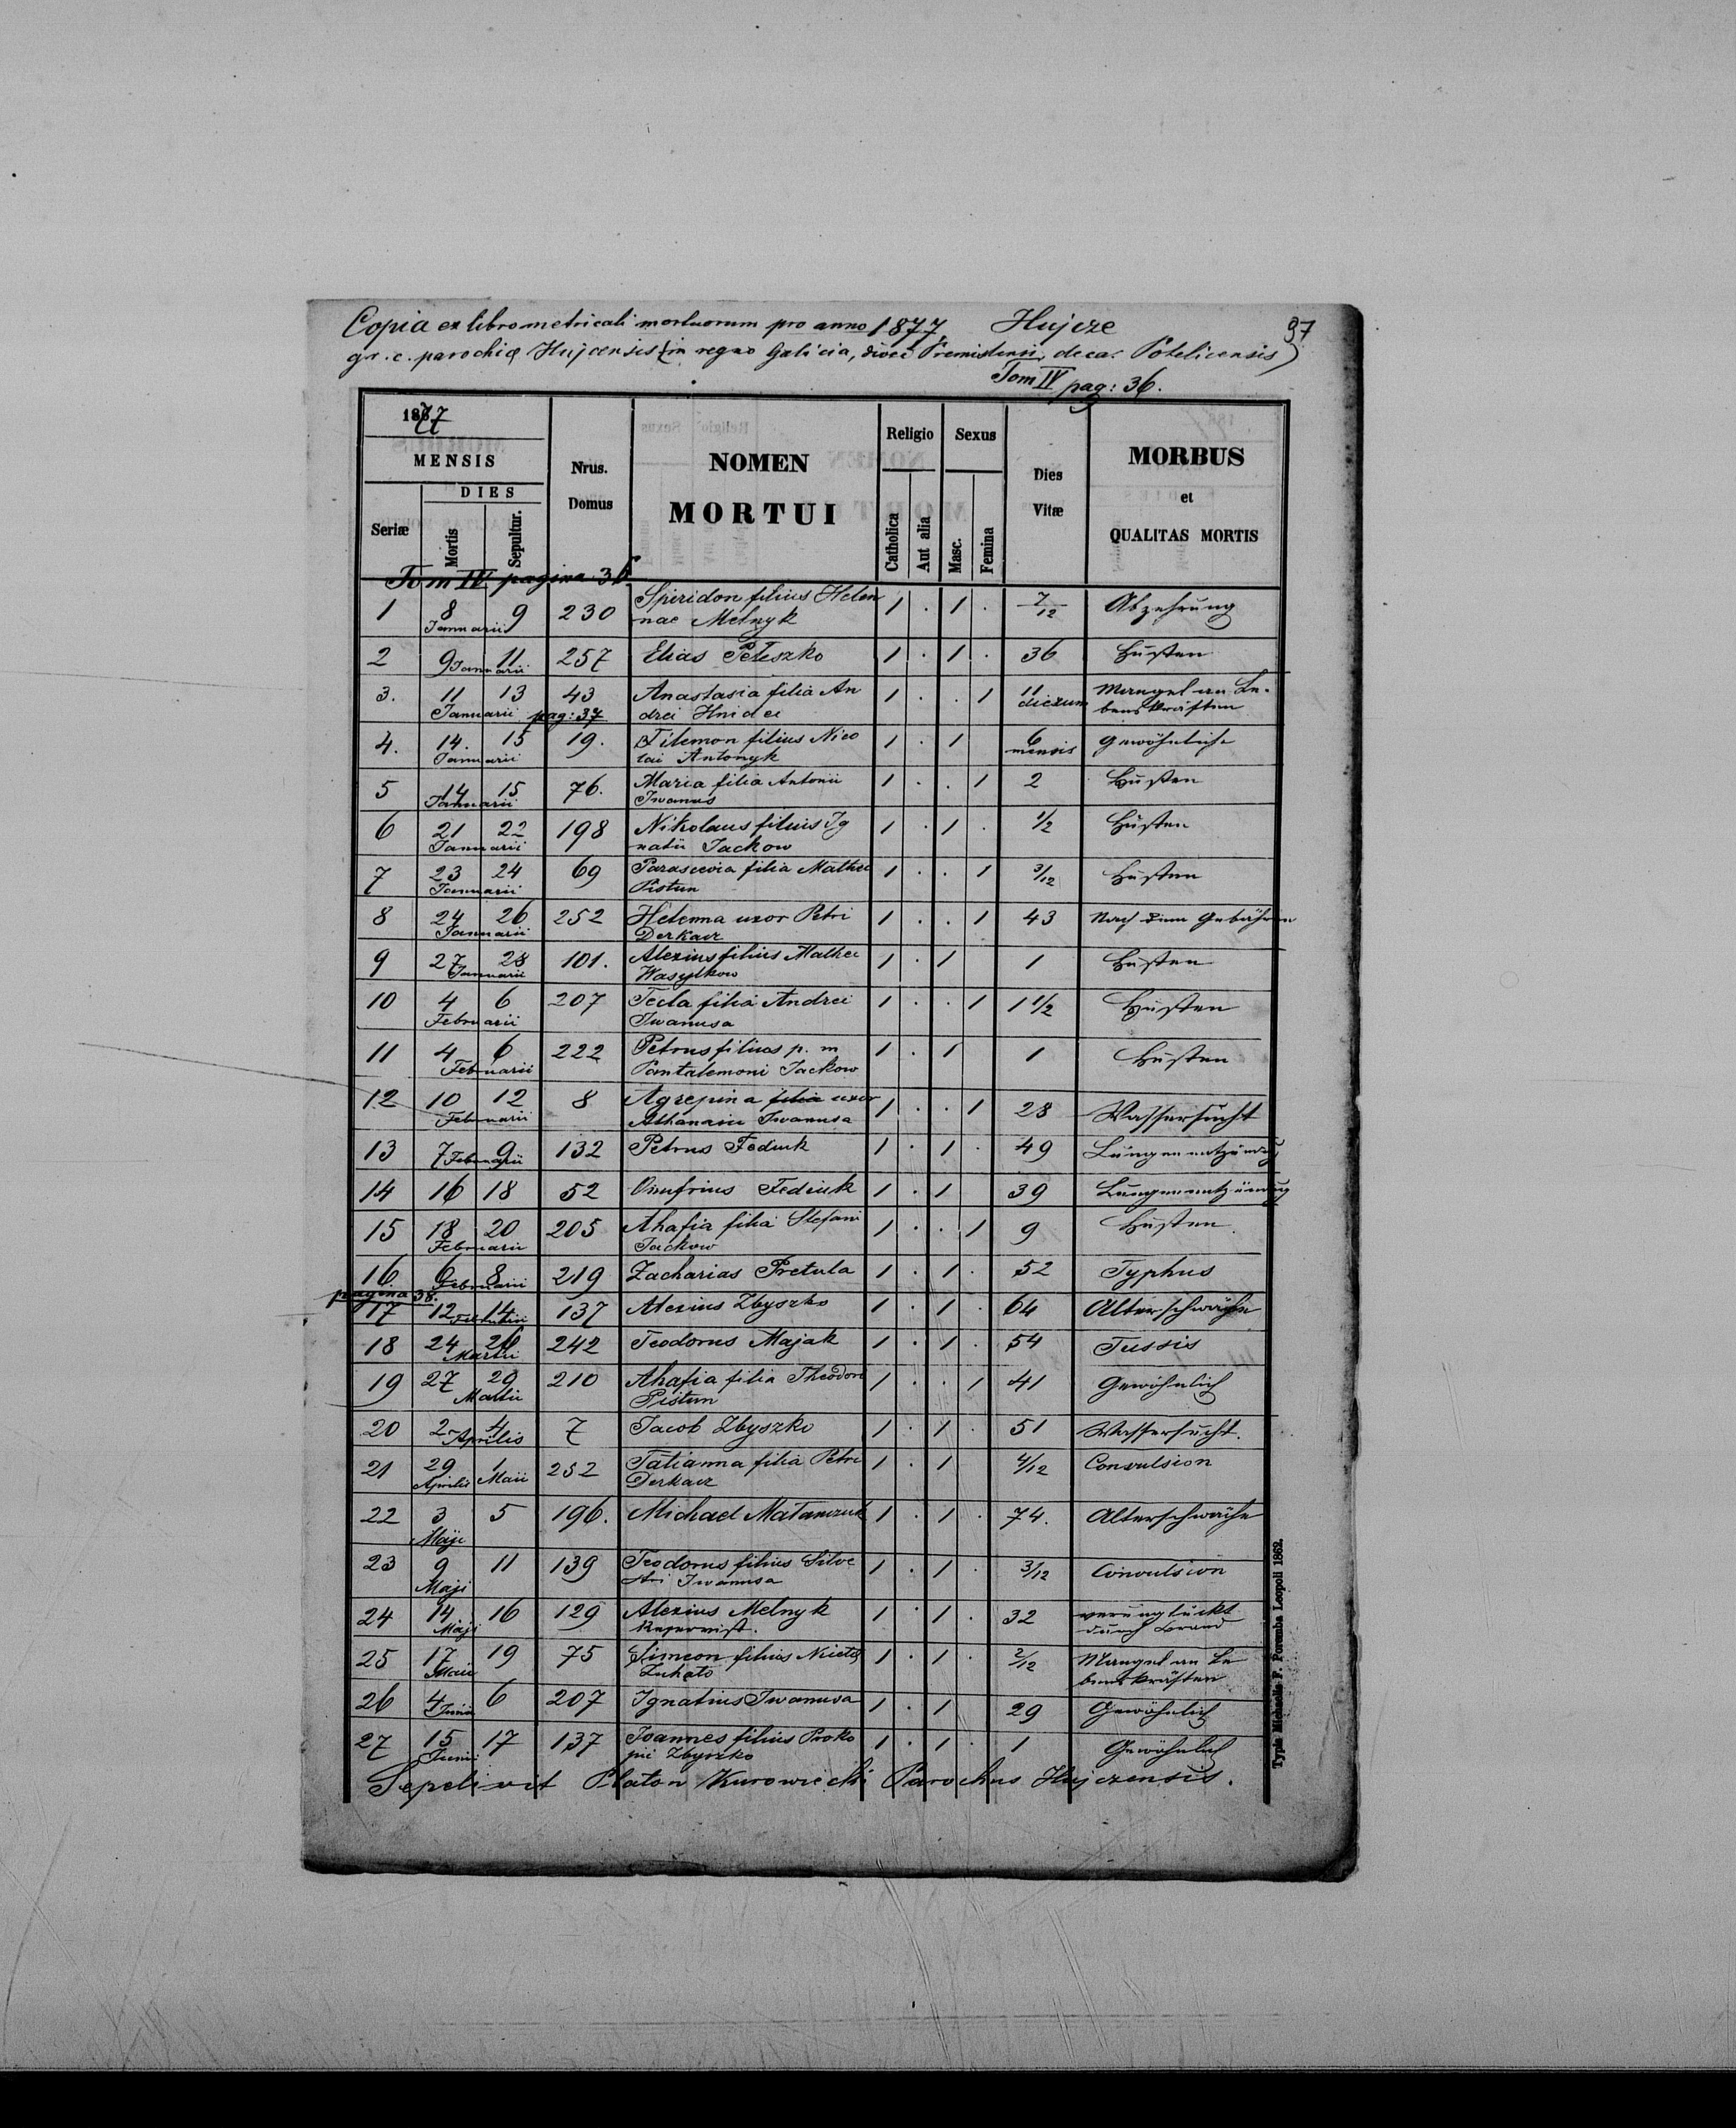 Copia ex libro metricali mortuorum pro anno 1877 Hujcze 97
gr. c. parochiæ Hujcensis (in regno Galicia, dioec Premisliensi, decar. Potelicensis)
Tom IV pag: 36.
1877
MENSIS
DIES
Seriæ
Mortis
Sepultur.
Nrus. Domus
NOMEN MORTUI
Religio
Catholica
Aut alia
Sexus
Masc.
Femina
Dies Vitæ
MORBUS et QUALITAS MORTIS
Tom IV pagina 36
1 8 9 230 Spiridon filius Helen 1 . 1 . 7/12 Abzehrung
Januarii nae Melnyk
2 9 11 257 Elias Peteszko 1 . 1 . 36 Husten
Januarii
3. 11 13 43 Anastasia filia An 1 . . 1 11 Mangel an Le-
Januarii pag: 37 drei Hnidei dierum benskräften
4. 14. 15 19. Filemon filius Nico 1 . 1 6 Gewöhnliche
Januarii lai Antonyk mensis
5 14 15 76. Maria filia Antonii 1 . . 1 2 Husten
Januarii Iwanus
6 21 22 198 Nikolaus filius Ig 1 . 1 . 1/2 Husten
Januarii natii Jackow
7 23 24 69 Parascevia filia Mathei 1 . . 1 3/12 Husten
Januarii Pistun
8 24 26 252 Helenna uxor Petri 1 . . 1 43 Nach dem Gebähren
Januarii Derkacz
9 27 28 101. Alexius filius Mathei 1 . 1 1 Husten
Januarii Wasylkow
10 4 6 207 Tecla filia Andrei 1 . . 1 1 1/2 Husten
Februarii Iwanusa
11 4 6 222 Petrus filius p. m 1 . 1 1 Husten
Februarii Pantalemoni Jackow
12 10 12 8 Agrepina filia uxor 1 . . 1 28 Wassersucht
Februarii Athanasii Iwanusa
13 7 9 132 Petrus Fediuk 1 . 1 . 49 Lungenentzündg
Februarii
14 16 18 52 Onufrius Fediuk 1 . 1 39 Lungenentzündung
15 18 20 205 Ahafia filia Stefani 1 . . 1 9 Husten
Februarii Jackow
16. 6 8 219 Zacharias Pretula 1 . 1 . 52 Typhus
Februarii
pagina 38.
17 12 14 137 Alexius Zbyszko 1 . 1 . 64 Alterschwäche
18 24 26 242 Teodorus Majak 1 . 1 . 54 Tussis
Martii
19 27 29 210 Ahafia filia Theodori 1 . . 1 41 Gewöhnlich
Martii Pistun
20 2 4 7 Jacob Zbyszko 1 . 1 . 51 Wassersucht.
Aprilis
21 29 1 252 Tatianna filia Petri 1 . 1 4/12 Convulsion
Aprilis Maii Derkacz
22 3 5 196. Michael Matanczuk 1 . 1 . 74. Alterschwäche
Maji
23 9 11 139 Teodorus filius Silve 1 . 1 . 3/12 Convulsion
Maji stri Iwanusa
24 14 16 129 Alexius Melnyk 1 . 1 . 32 verunglückt
Maji Reservist. durch Brand
25 17 19 75 Simeon filius Nicetæ 1 . 1 . 2/12 Mangel an Le
Maii benskräften
26 4 6 207 Ignatius Iwanusa 1 . 1 29 Gewöhnlich
Junii
27 15 17 137 Joannes filius Proko 1 . 1 . 1 Gewöhnlich
Junii pii Zbyszko
Sepelivit Platon Kurowiecki Parochus Hujczensis.
Typis Michaelis F. Poremba Leopoli 1862.